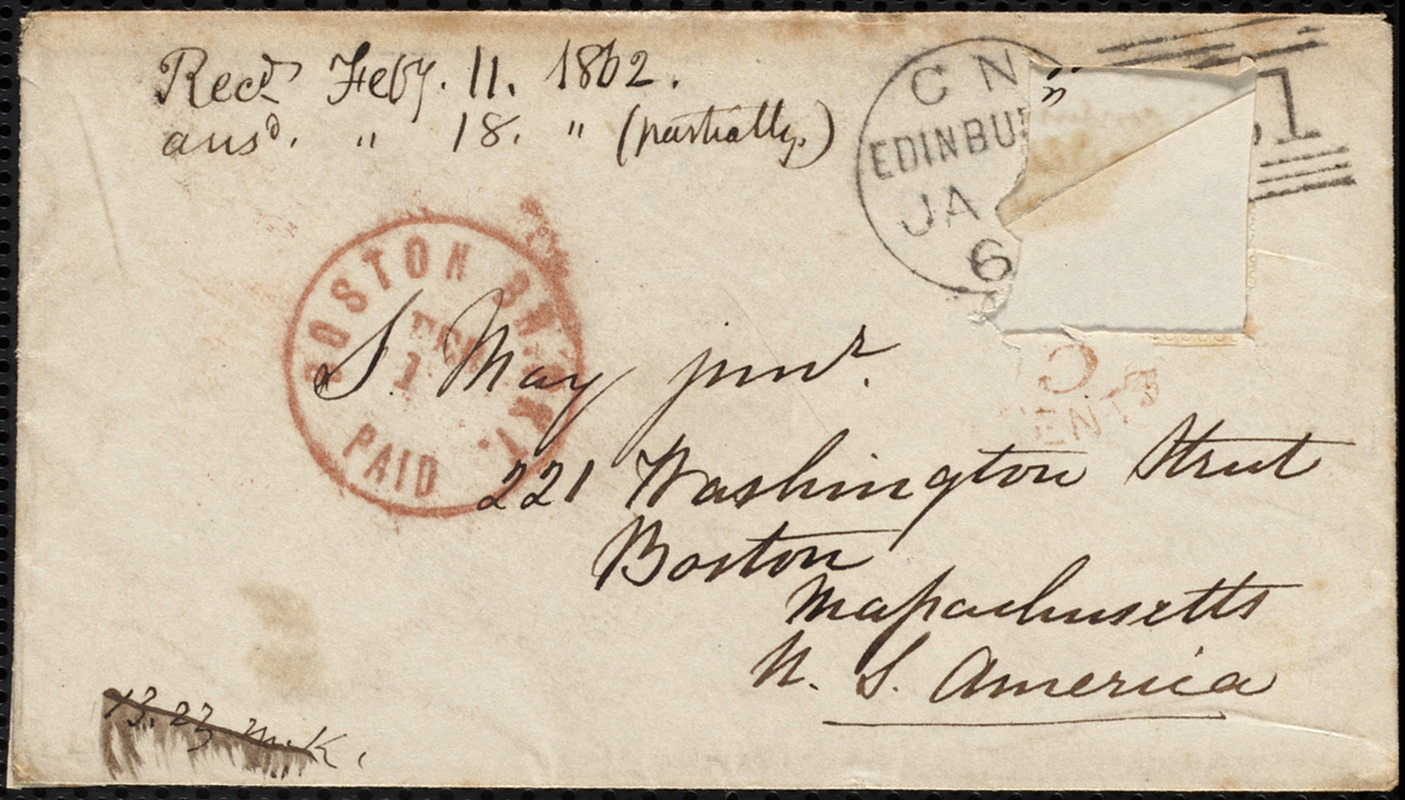 Recd Feby. 11. 1862.
ansd. " 18. " (partially.)
C N
EDINBU
JA
6
1
BOSTON BR. PKT.
FEB
1
PAID
S. May junr.
5
CENTS
221 Washington Street
Boston
Massachusetts
U. S. America
13. 23 M. K.